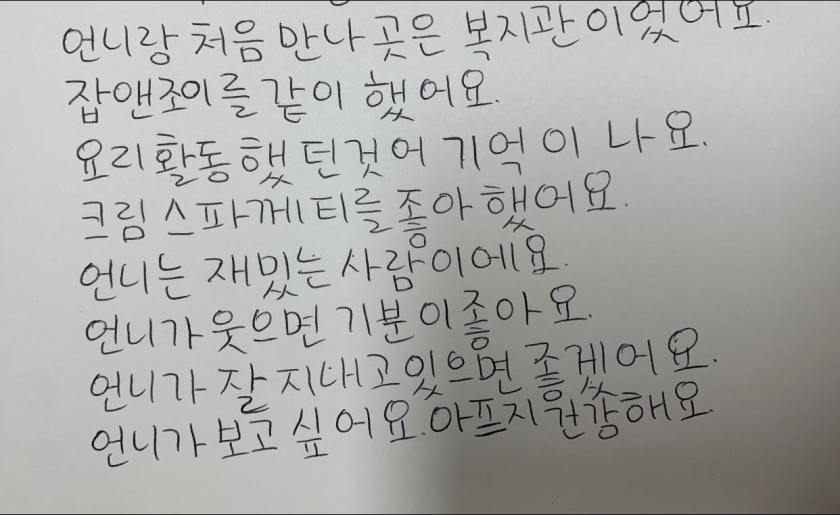 언니랑 처음 만나 곳은 복지관이었어요.
잡앤조이를 같이 했어요.
요리활동했던것어 기억이 나요.
크림스파게티를 좋아했어요.
언니는 재밌는사람이에요.
언니가웃으면 기분이좋아요.
언니가 잘 지내고있으면 좋겠어요.
언니가보고싶어요.아프지건강해요.